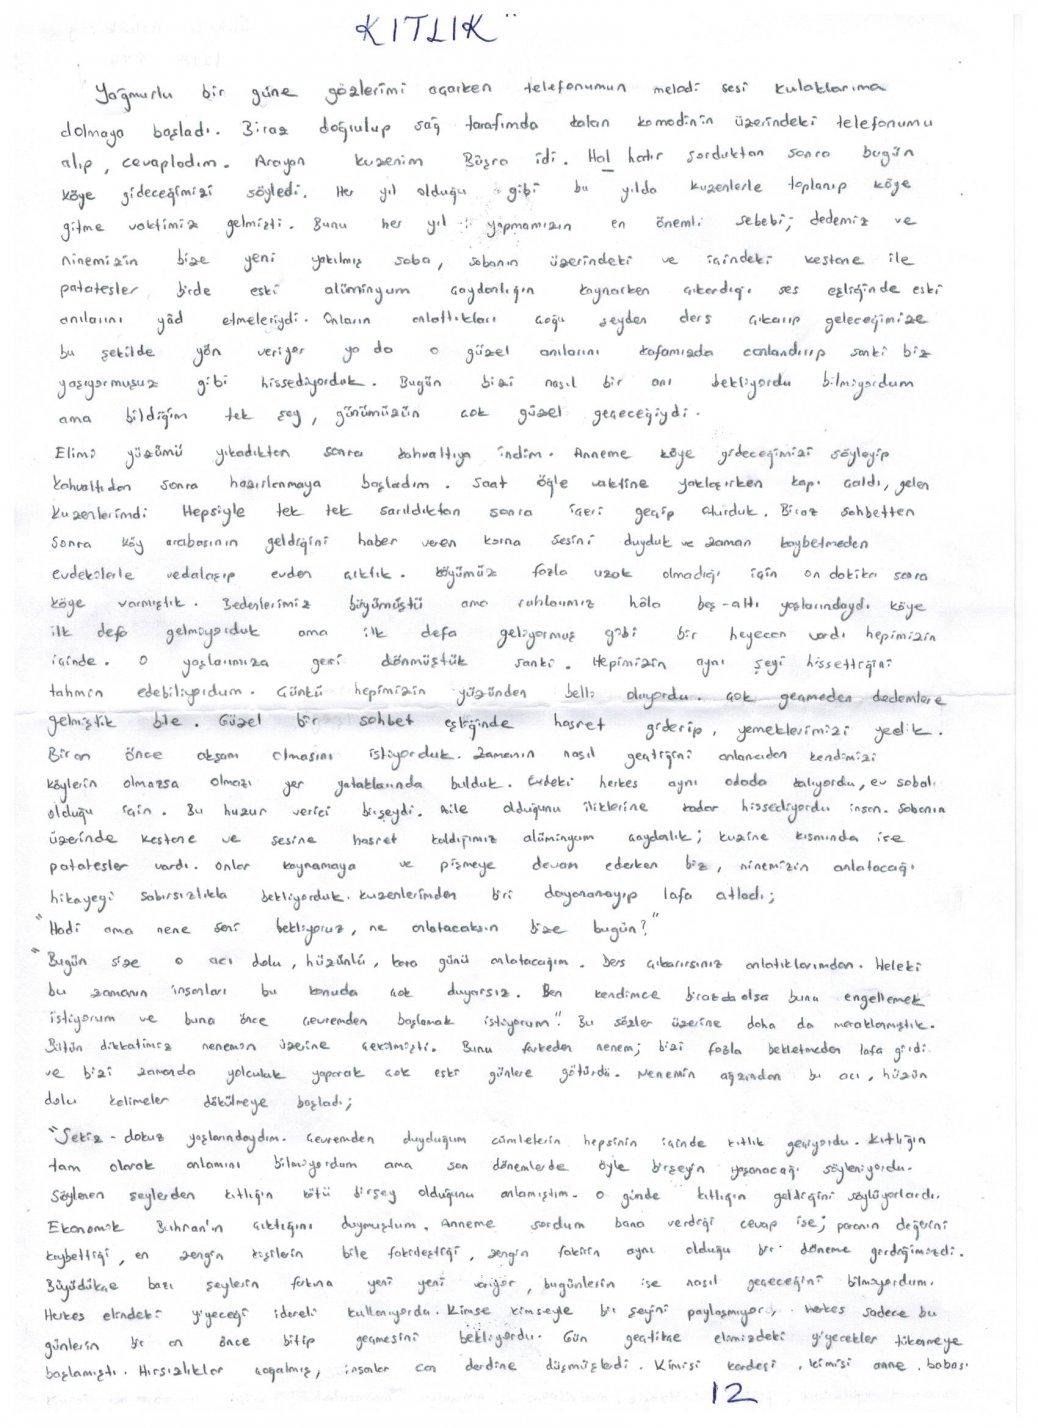 KITLIK
Yağmurlu bir güne gözlerimi açarken telefonumun melodi sesi kulaklarıma
dolmaya başladı. Biraz doğrulup sağ tarafımda kalan komodinin üzerindeki telefonumu
alıp, cevapladım. Arayan kuzenim Büşra idi. Hal hatır sorduktan sonra bugün
köye gideceğimizi söyledi. Her yıl olduğu gibi bu yılda kuzenlerle toplanıp köye
gitme vaktimiz gelmişti. Bunu her yıl yapmamızın en önemli sebebi; dedemiz ve
ninemizin bize yeni yakılmış soba, sobanın üzerindeki ve içindeki kestane ile
patatesler birde eski alüminyum çaydanlığın kaynarken çıkardığı ses eşliğinde eski
anılarını yâd etmeleriydi. Onların anlattıkları çoğu şeyden ders çıkarıp geleceğimize
bu şekilde yön veriyor ya da o güzel anılarını kafamızda canlandırıp sanki biz
yaşıyormuşuz gibi hissediyorduk. Bugün bizi nasıl bir anı bekliyordu bilmiyordum
ama bildiğim tek şey, günümüzün çok güzel geçeceğiydi.
Elimi yüzümü yıkadıkten sonra kahvaltıya indim. Anneme köye gideceğimizi söyleyip
kahvaltıdan sonra hazırlanmaya başladım. Saat öğle vaktine yaklaşırken kapı çaldı, gelen
kuzenlerimdi Hepsiyle tek tek sarıldıktan sonra içeri geçip oturduk. Biraz sohbetten
sonra köy arabasının geldiğini haber veren korna sesini duyduk ve zaman kaybetmeden
evdekilerle vedalaşıp evden çıktık. Köyümüz fazla uzak olmadığı için on dakika sonra
köye varmıştık. Bedenlerimiz büyümüştü ama ruhlarımız hâlâ beş-altı yaşlarındaydı köye
ilk defa gelmiyorduk ama ilk defa geliyormuş gibi bir heyecan vardı hepimizin
içinde. O yaşlarımıza geri dönmüştük sanki. Hepimizin aynı şeyi hissettiğini
tahmin edebiliyordum. Çünkü hepimizin yüzünden belli oluyordu. Çok geçmeden dedemlere
gelmiştik bile. Güzel bir sohbet eşliğinde hasret giderip, yemeklerimizi yedik.
Bir an önce akşam olmasını istiyorduk. Zamanın nasıl geçtiğini anlamadan kendimizi
köylerin olmazsa olmazı yer yataklarında bulduk. Evdeki herkes aynı odada kalıyordu, ev sobalı
olduğu için. Bu huzur verici birşeydi. Aile olduğunu iliklerine kadar hissediyordu insan. Sobanın
üzerinde kestane ve sesine hasret kaldığımız alüminyum çaydanlık; kuzine kısmında ise
patatesler vardı. Onlar kaynamaya ve pişmeye devam ederken biz, ninemizin anlatacağı
hikayeyi sabırsızlıkla bekliyorduk. Kuzenlerimden biri dayanamayıp lafa atladı;
"Hadi ama nene seni bekliyoruz, ne anlatacaksın bize bugün?"
"Bugün size o acı dolu, hüzünlü, kara günü anlatacağım. Ders çıkarırsınız anlatıklarımdan. Heleki
bu zamanın insanları bu konuda çok duyarsız. Ben kendimce birazda olsa bunu engellemek
istiyorum ve buna önce çevremden başlamak istiyorum". Bu sözler üzerine daha da meraklanmıştık.
Bütün dikkatimiz nenemin üzerine çekilmişti. Bunu farkeden nenem; bizi fazla bekletmeden lafa girdi
ve bizi zamanda yolculuk yaparak çok eski günlere götürdü. Nenemin ağzından bu acı, hüzün
dolu kelimeler dökülmeye başladı;
"Sekiz-dokuz yaşlarındaydım. Çevremden duyduğum cümlelerin hepsinin içinde kıtlık geçiyordu. Kıtlığın
tam olarak anlamını bilmiyordum ama son dönemlerde öyle birşeyin yaşanacağı söyleniyordu.
Söylenen şeylerden kıtlığın kötü birşey olduğunu anlamıştım. O günde kıtlığın geldiğini söylüyorlardı.
Ekonomik Buhran'ın çıktığını duymuştum. Anneme sordum bana verdiği cevap ise; paranın değerini
kaybettiği, en zengin kişilerin bile fakirleştiği, zengin fakirin aynı olduğu bir döneme girdiğimizdi.
Büyüdükçe bazı şeylerin farkına yeni yeni varıyor, bugünlerin ise nasıl geçeceğini bilmiyordum.
Herkes elindeki yiyeceği idareli kullanıyordu. Kimse kimseyle bir şeyini paylaşmıyor, herkes sadece bu
günlerin bir an önce bitip geçmesini bekliyordu. Gün geçtikçe elimizdeki yiyecekler tükenmeye
başlamıştı. Hırsızlıklar çoğalmış, insanlar can derdine düşmüşlerdi. Kimisi kardeşi, kimisi anne, babası
12